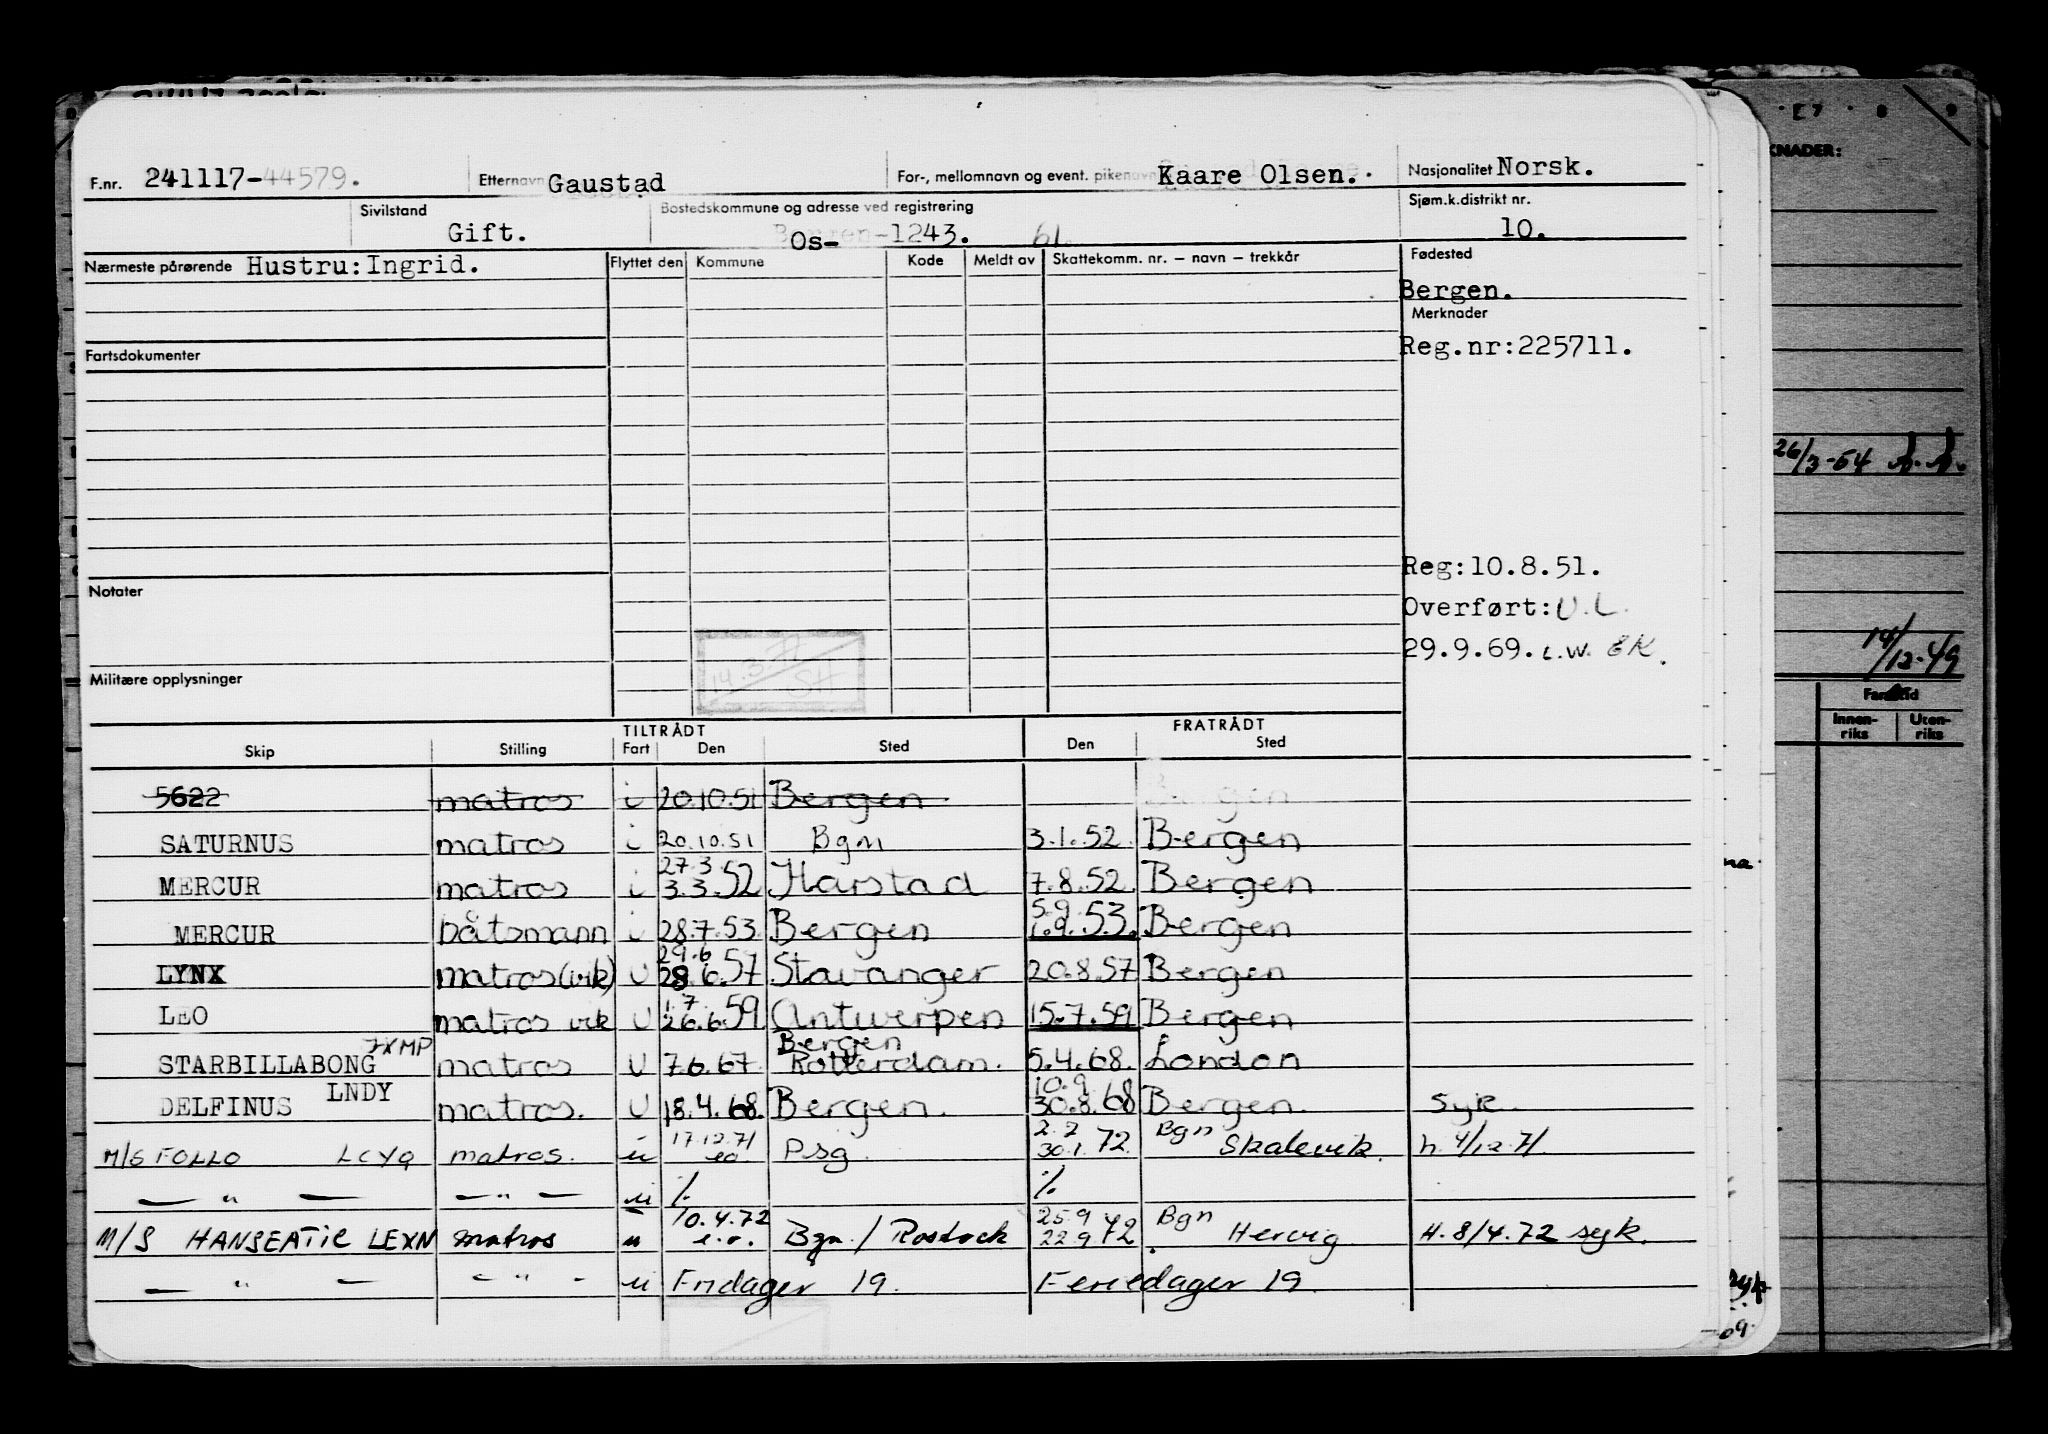 F.nr. 241117-44579. Etternavn Gaustad For-, mellomnavn og event. pikenavn Kaare Olsen. Nasjonalitet Norsk.
Sivilstand Gift. Bostedskommune og adresse ved registrering Os-1243. 61. Sjøm.k.distrikt nr. 10.
Nærmeste pårørende Hustru: Ingrid. Flyttet den Kommune Kode Meldt av Skattekomm. nr. – navn – trekkår Fødested
Bergen.
Merknader
Fartsdokumenter Reg.nr:225711.
Reg:10.8.51.
Notater Overført: U.L.
29.9.69. L.W. EK.
14.3.77 SH
Militære opplysninger
TILTRÅDT FRATRÅDT
Skip Stilling Fart Den Sted Den Sted
5622 matros i 20.10.51 Bergen
SATURNUS matros i 20.10.51 Bgn 3.1.52. Bergen
27.3
MERCUR matros i 3.3.52 Harstad 7.8.52. Bergen
5.9
MERCUR båtsmann i 28.7.53 Bergen 1.9.53. Bergen
29.6
LYNX matros (vik) U 28.6.57 Stavanger 20.8.57 Bergen
1.7
LEO matros vik U 26.6.59 Antwerpen 15.7.59 Bergen
7XMP Bergen
STARBILLABONG matros U 7.6.67 Rotterdam. 5.4.68. London
LNDY 10.9
DELFINUS matros. U 18.4.68. Bergen. 30.8.68 Bergen. Syk.
17.12.71 2.2 Bgn
M/S FOLLO LCYQ matros. u eo Psg 30.1.72. Skalevik. h. 4/12.71
— " — — " — u %. %.
10.4.72 25.9 Bgn
M/S HANSEATIC LEXN matros u e.o. Bgn / Rostock 22.9 72 Hervig H. 8/4.72 syk.
— " — — " - u Fridager 19. Feriedager 19.
E7 8 9
KNADER:
26/3-54
14/12-49
Fartstid
Innen-riks Uten-riks